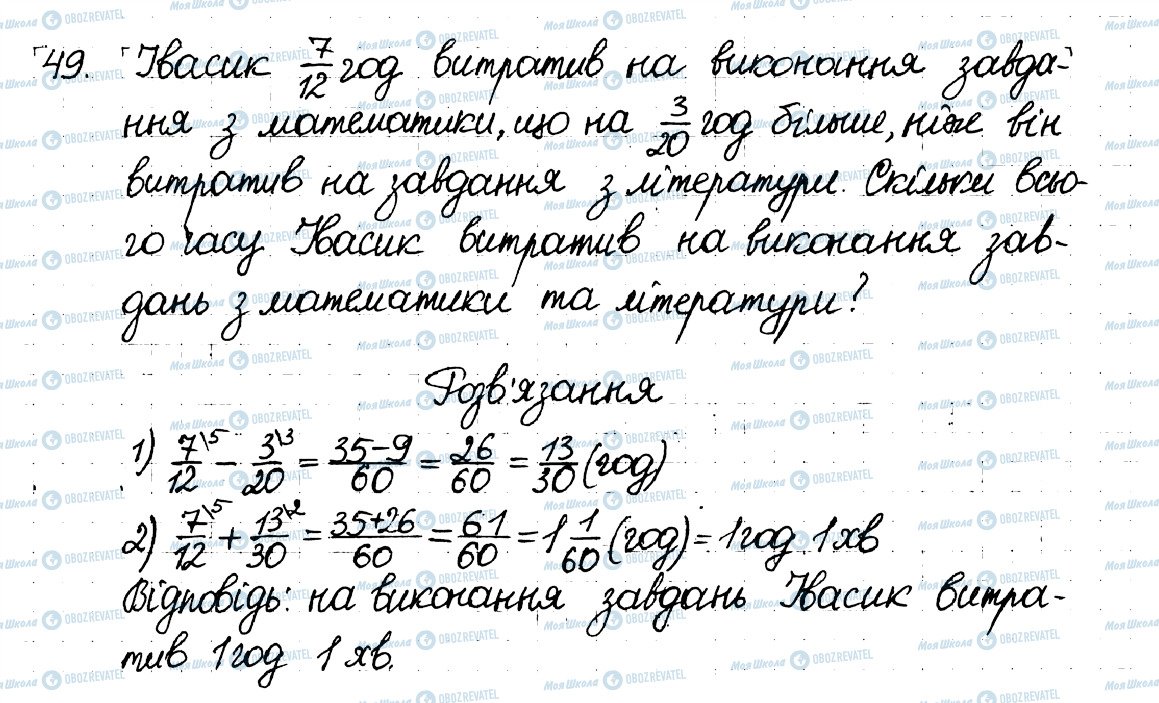 49. Івасик 7/12 год витратив на виконання завда-
ння з математики, що на 3/20 год більше, ніж він
витратив на завдання з літератури. Скільки всьо-
го часу Івасик витратив на виконання зав-
дань з математики та літератури?
Розв'язання
1) 7\5/12 - 3\3/20 = 35-9/60 = 26/60 = 13/30 (год)
2) 7\5/12 + 13\2/30 = 35+26/60 = 61/60 = 1 1/60 (год) = 1 год 1 хв
Відповідь: на виконання завдань Івасик витра-
тив 1 год 1 хв.
Моя Школа OBOZREVATEL